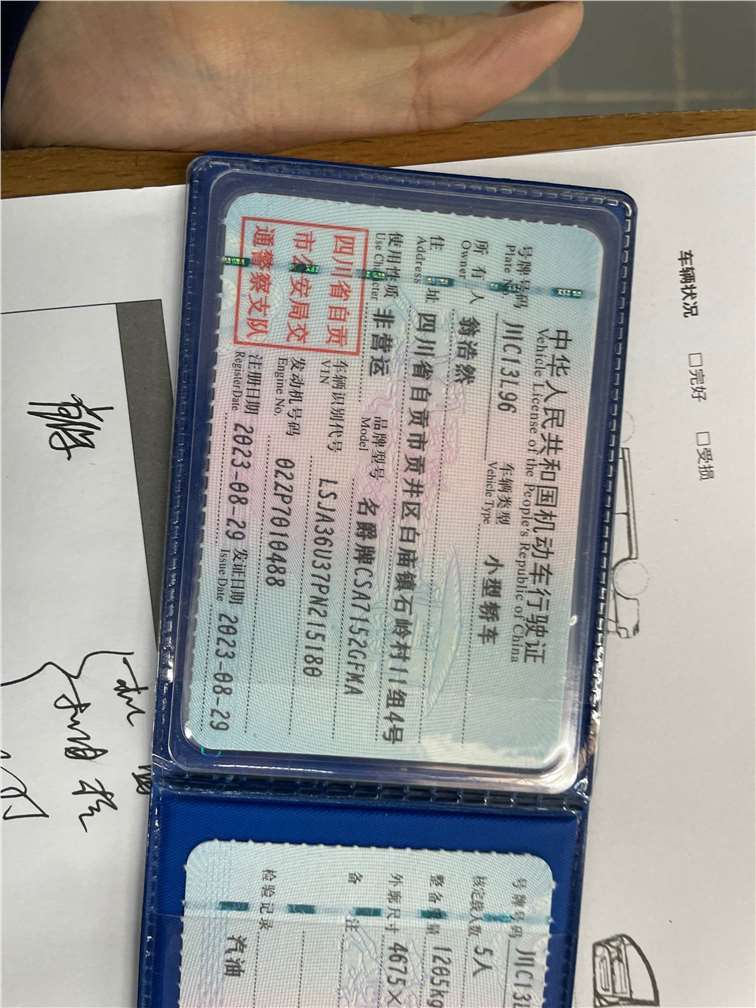 中华人民共和国机动车行驶证
Vehicle License of the People's Republic of China
号牌号码 川C13L96 车辆类型 小型轿车
Plate No. Vehicle Type
所有人 翁浩然
Owner
住址 四川省自贡市贡井区白庙镇石岭村11组4号
Address
使用性质 非营运 品牌型号 名爵牌CSA7152GFMA
Use Character Model
四川省自贡
市公安局交
通警察支队
车辆识别代号 LSJA36U37PN215180
VIN
发动机号码 02ZP7010488
Engine No.
注册日期 2023-08-29 发证日期 2023-08-29
Register Date Issue Date
号牌号码 川C13L
核定载人数 5人
整备质量 1205kg
外廓尺寸 4675×
备注
检验记录 汽油
车辆状况 □完好 □受损